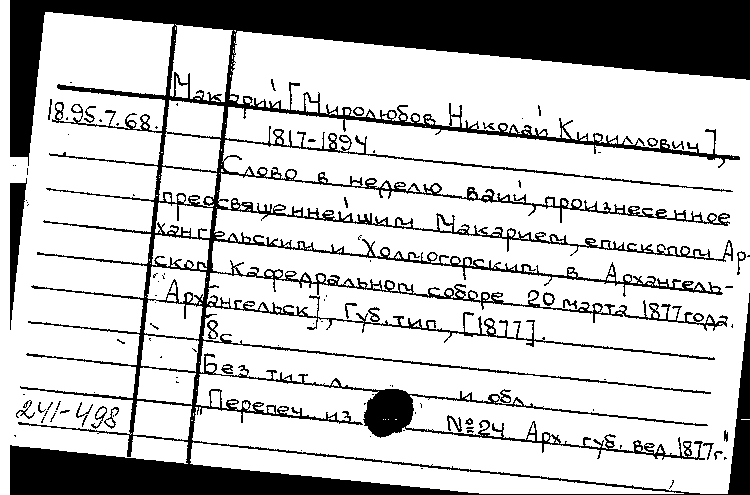 Макарий [Миролюбов, Николай Кириллович],
18.95.7.68.
1817-1894.
Слово в неделю ваий, произнесенное
преосвященнейшим Макарием, епископом Ар-
хангельским и Холмогорским, в Архангель-
ском Кафедральном соборе 20 марта 1877 года.
Архангельск], Губ. тип., [1877].
8с.
Без тит. л. и обл.
"Перепеч. из № 24 Арх. губ. вед. 1877 г."
241-498